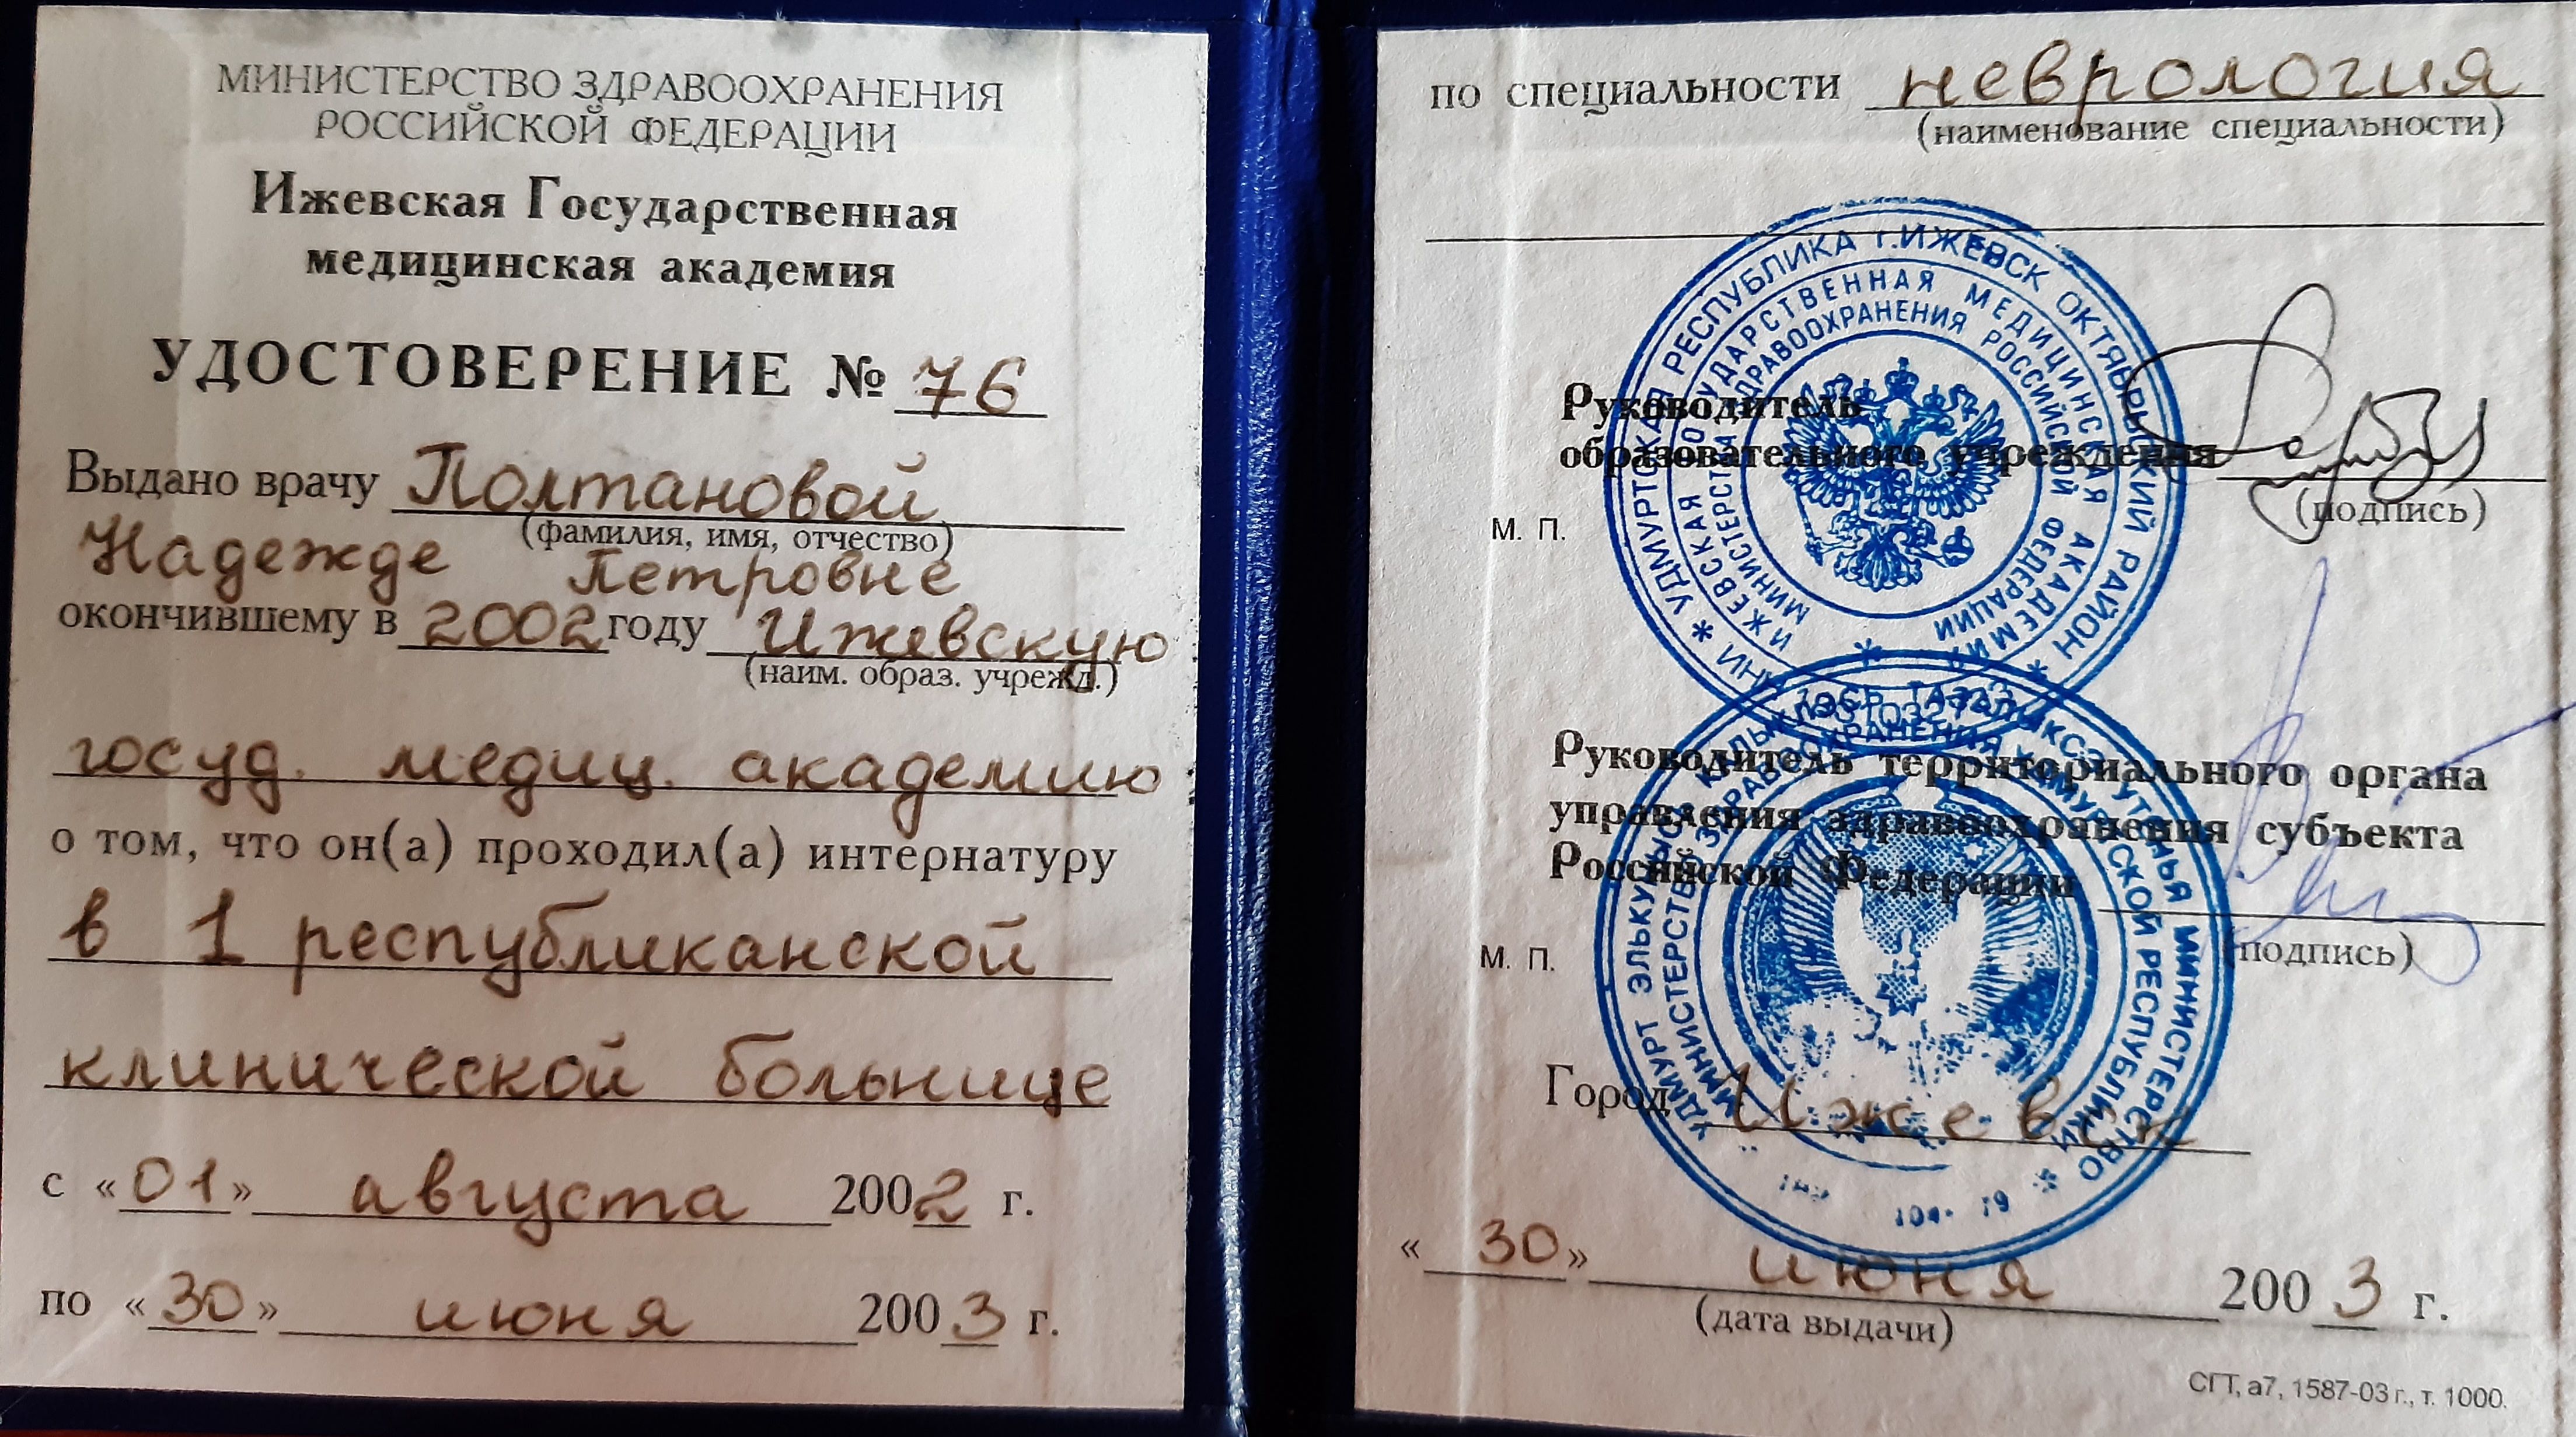 МИНИСТЕРСТВО ЗДРАВООХРАНЕНИЯ
РОССИЙСКОЙ ФЕДЕРАЦИИ
Ижевская Государственная
медицинская академия
УДОСТОВЕРЕНИЕ № 76
Выдано врачу Полтановой
(фамилия, имя, отчество)
Надежде Петровне
окончившему в 2002 году Ижевскую
(наим. образ. учрежд.)
госуд. медиц. академию
о том, что он(а) проходил(а) интернатуру
в 1 республиканской
клинической больнице
с «01» августа 2002 г.
по «30» июня 2003 г.
по специальности неврология
(наименование специальности)
УДМУРТСКАЯ РЕСПУБЛИКА г.ИЖЕВСК ОКТЯБРЬСКИЙ РАЙОН
ИЖЕВСКАЯ ГОСУДАРСТВЕННАЯ МЕДИЦИНСКАЯ АКАДЕМИЯ
МИНИСТЕРСТВА ЗДРАВООХРАНЕНИЯ РОССИЙСКОЙ ФЕДЕРАЦИИ
Руководитель
образовательного учреждения
(подпись)
М. П.
Руководитель территориального органа
управления здравоохранения субъекта
Российской Федерации
(подпись)
М. П.
УДМУРТ ЭЛЬКУНЫСЬ КАЛЫКЛЭСЬ ТАЗАЛЫКСЭ УТЁНЪЯ МИНИСТЕРСТВО
МИНИСТЕРСТВО ЗДРАВООХРАНЕНИЯ УДМУРТСКОЙ РЕСПУБЛИКИ
Город Ижевск
«30» июня 2003 г.
(дата выдачи)
СГТ, а7, 1587-03 г., т. 1000.